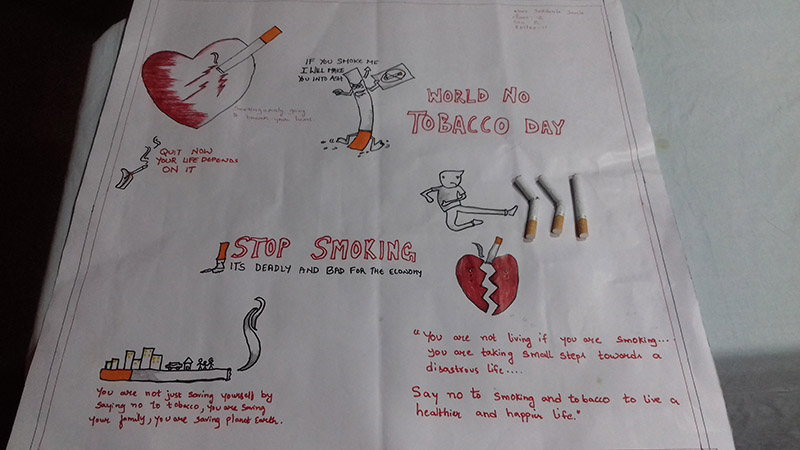 IF YOU SMOKE ME
I WILL MAKE
YOU INTO ASH
WORLD NO
TOBACCO DAY
QUIT NOW
YOUR LIFE DEPENDS
ON IT
STOP SMOKING
ITS DEADLY AND BAD FOR THE ECONOMY
"You are not living if you are smoking....
you are taking small steps towards a
disastrous life....
Say no to smoking and tobacco to live a
healthier and happier life."
You are not just saving yourself by
saying no to tobacco, you are saving
your family, you are saving planet Earth.